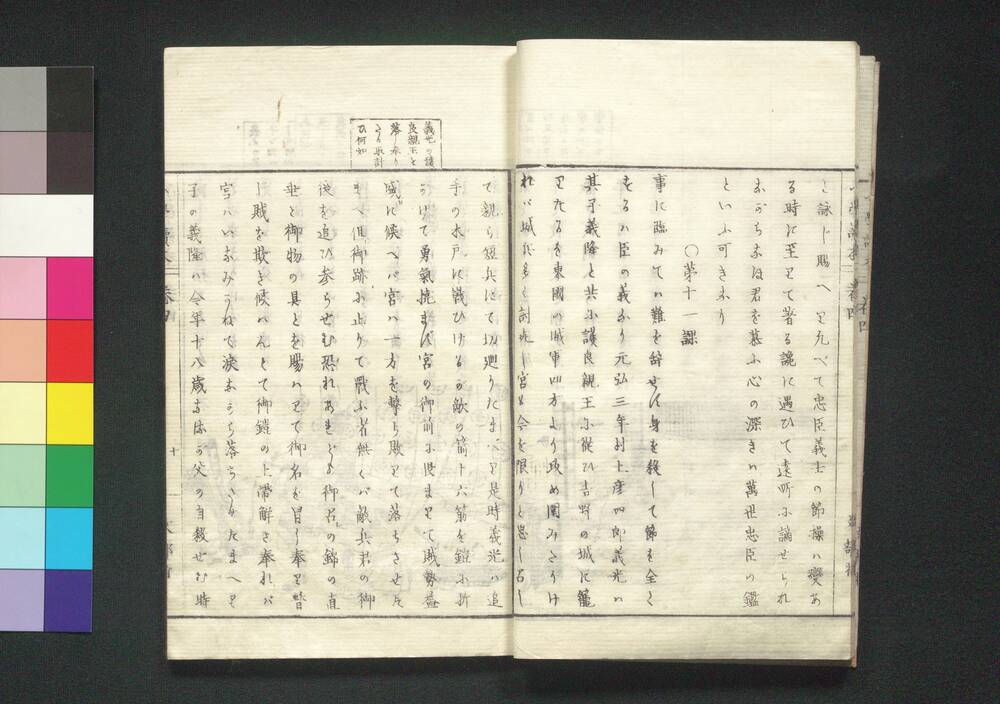 と詠じ賜へりすべて忠臣義士の節操ハ変あ
る時に至りて著る讒に遇ひて遠所に謫せられ
ながらなほ君を慕ふ心の深きハ萬世忠臣の鑑
といふ可きなり
○第十一課
事に臨みてハ難を辞せず身を殺して節を全く
するハ臣の義なり元弘三年村上彦四郎義光ハ
其子義隆と共に護良親王に従ひ吉野の城に籠
りたるを東國の城軍四方より攻め囲みたりけ
れバ城兵多く討死し宮も今を限りと思し召し
て親ら短兵にて切廻りたまへり是時義光ハ追
手の木戸に戦ひけるが敵の箭十六筋を鎧に折
かけて勇氣撓まず宮の御前に跪まりて賊勢益
威に候へバ宮ハ一方を撃ち敗りて落ちさせた
まへ但御跡に止りて戦ふ者無くバ敵兵君の御
後を追ひ参らせむ恐れあれども御召の錦の直
垂と御物の具とを賜ハりて御名を冒し奉り替
し賊を欺き候ハんとて御鎧の上帯解き奉れバ
宮ハいなみかねて涙ながら落ちさりたまへり
子の義隆ハ今年十八歳なるが父の自殺せむ時
義光の護
良親王を
落し奉り
たる取計
ひ何如
十